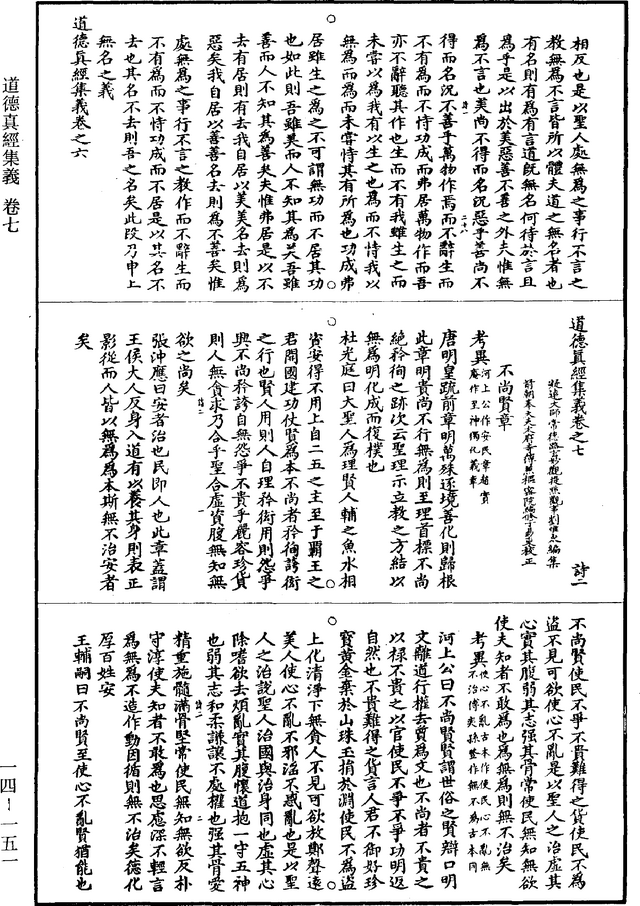 相反也是以聖人處無為之事行不言之
教無為不言皆所以體夫道之無名者也
有名則有為有言道既無名何待於言且
為乎是以出於美惡善不善之外夫惟無
為不言也美尚不得而名況惡乎善尚不
得而名況不善乎萬物作焉而不辭生而
不有為而不恃功成而弗居萬物作而吾
亦不辭聽其作也生而不有我雖生之而
未嘗以為我有以生之也為而不恃我以
無為而為而未嘗恃其有所為也功成弗
居雖生之為之不可謂無功而不居其功
也如此則吾雖美而人不知其為美吾雖
善而人不知其為善矣夫惟弗居是以不
去有居則有去我自居以美美名去則為
惡矣我自居以善善名去則為不善矣惟
處無為之事行不言之教作而不辭生而
不有為而不恃功成而不居是以其名不
去也其名不去則吾之名矣此段乃申上
無名之義
道德真經集義卷之六
道德真經集義 卷七
道德真經集義卷之七 詩二
凝遠大師常德路玄妙觀提點觀事劉惟永編集
前朝奉大夫太府寺簿兼樞密院編修丁易東校正
不尚賢章
考異河上公作安民章趙實庵作至神獨化義章
唐明皇疏前章明萬殊逐境善化則歸根
此章明貴尚不行無為則至理首標不尚
絕矜徇之跡次云聖理示立教之方結以
無為明化成而復樸也
杜光庭曰大聖人為理賢人輔之魚水相
資安得不用上自二五之主至于霸王之
君開國建功仗賢為本不尚者矜徇誇衒
之行也賢人用則人自理矜衒用則怨爭
興不尚矜誇自無怨爭不貴乎麗容珍貨
則人無貪求乃合乎聖合虛資腹無知無
欲之尚矣
張沖應曰安者治也民即人也此章蓋謂
王侯大人反身入道有以養其身則表正
影從而人皆以無為為本斯無不治安者
矣
不尚賢使民不爭不貴難得之貨使民不為
盜不見可欲使心不亂是以聖人之治虛其
心實其腹弱其志強其骨常使民無知無欲
使夫知者不敢為也為無為則無不治矣
考異使心不亂古本作使民心不亂無不治傅奕孫登作無不為古本同
河上公曰不尚賢賢謂世俗之賢辯口明
文離道行權去質為文也不尚者不貴之
以祿不貴之以官使民不爭不爭功明返
自然也不貴難得之貨言人君不御好珍
寶黃金棄於山珠玉捐於淵使民不為盜
上化清淨下無貪人不見可欲放鄭聲遠
美人使心不亂不邪淫不惑亂也是以聖
人之治說聖人治國與治身同也虛其心
除嗜欲去煩亂實其腹懷道抱一守五神
也弱其志和柔謙讓不處權也強其骨愛
精重施髓滿骨堅常使民無知無欲反朴
守淳使夫知者不敢為也思慮深不輕言
為無為不造作動因循則無不治矣德化
厚百姓安
王輔嗣曰不尚賢至使心不亂賢猶能也
一四－一五一